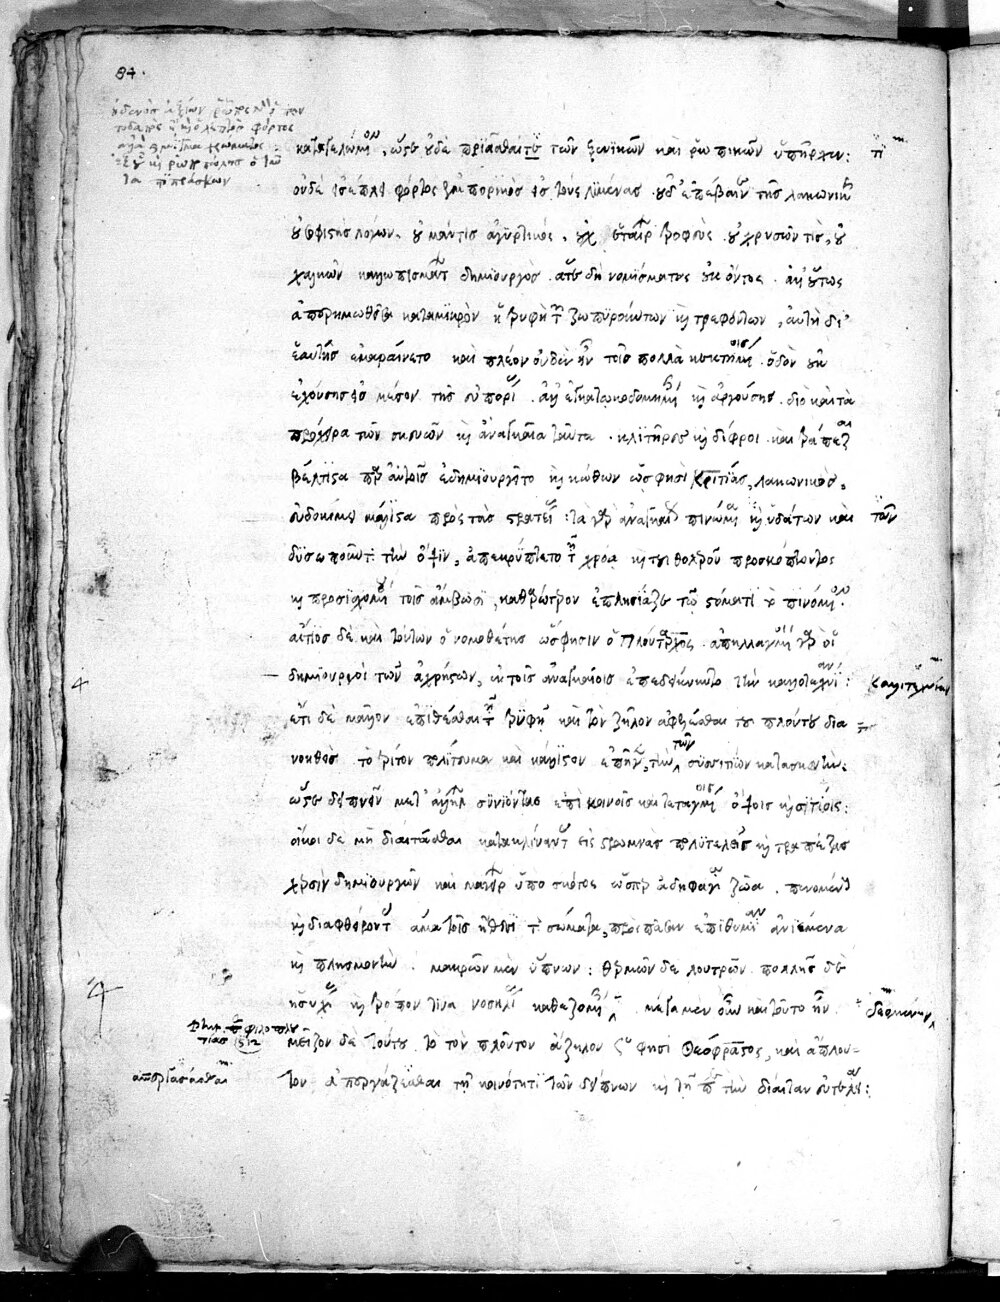 84.
καταγελώμενον, ὥστε οὐδὲ πρίασθαί τι τῶν ξενικῶν καὶ ῥωπικῶν ὑπῆρχεν:
οὐδὲ εἰσέπλει φόρτος ἐμπορικὸς εἰς τοὺς λιμένας. οὐδ' ἐπέβαινε τῆς λακωνικῆς
οὐ σοφιστὴς λόγων, οὐ μάντις ἀγυρτικός, οὐχ ἑταιρῶν τροφεύς. οὐ χρυσῶν τις, οὐ
χαλκῶν καλλωπισμάτων δημιουργός. ἅτε δὴ νομίσματος οὐκ ὄντος. ἀλλ' οὕτως
ἀπερημωθεῖσα κατὰ μικρὸν ἡ τρυφὴ τῶν ζωπυρούντων καὶ τρεφόντων, αὐτὴ δι'
ἑαυτῆς ἐμαραίνετο καὶ πλέον οὐδὲν ἦν τοῖς πολλὰ κεκτημένοις. ὁδὸν οὐκ
ἐχούσης εἰς μέσον τῆς εὐπορίας. ἀλλ' ἐγκατῳκοδομημένης καὶ ἀργούσης. διὸ καὶ τὰ
πρόχειρα τῶν σκευῶν καὶ ἀναγκαῖα ταῦτα. κλιντῆρες καὶ δίφροι. καὶ τράπεζαι
βέλτιστα παρ' αὐτοῖς ἐδημιουργεῖτο καὶ κώθων ὥς φησι Κριτίας, λακωνικὸς,
εὐδοκίμει μάλιστα πρὸς τὰς στρατείας. τὰ γὰρ ἀναγκαίως πινόμενα τῶν ὑδάτων καὶ
δυσωποῦντα τὴν ὄψιν, ἀπεκρύπτετο τῇ χρόᾳ καὶ τοῦ θολεροῦ προσκόπτοντος
καὶ προσισχομένου τοῖς ἄμβωσι, καθαρώτερον ἐπλησίαζε τῷ στόματι τὸ πινόμενον.
αἴτιος δὲ καὶ τούτων ὁ νομοθέτης ὥς φησιν ὁ Πλούταρχος. ἀπηλλαγμένοι γὰρ οἱ
δημιουργοὶ τῶν ἀχρήστων, ἐν τοῖς ἀναγκαίοις ἐπεδείκνυντο τὴν καλλιτεχνίαν:
ἔτι δὲ μᾶλλον ἐπιθέσθαι τῇ τρυφῇ καὶ τὸν ζῆλον ἀφελέσθαι τοῦ πλούτου δια-
νοηθεὶς τὸ τρίτον πολίτευμα καὶ κάλλιστον ἐπῆγε, τὴν τῶν συσσιτίων κατασκευήν:
ὥστε δειπνεῖν μετ' ἀλλήλων συνιόντας ἐπὶ κοινοῖς καὶ τεταγμένοις ὄψοις καὶ σιτίοις:
οἴκοι δὲ μὴ διαιτᾶσθαι κατακλίναντας εἰς στρωμνὰς πολυτελεῖς καὶ τραπέζας
χερσὶν δημιουργῶν καὶ μαγείρων ὑπὸ σκότος ὥσπερ ἀδηφάγα ζῶα. πιαινομένους
καὶ διαφθείροντας ἅμα τοῖς ἤθεσι τὰ σώματα, πρὸς πᾶσαν ἐπιθυμίαν ἀνειμένα
καὶ πλησμονήν. μακρῶν μὲν ὕπνων: θερμῶν δὲ λουτρῶν. πολλῆς δὲ
ἡσυχίας καὶ τρόπον τινὰ νοσηλείας καθ' ἡμέραν μέγα μὲν οὖν καὶ τοῦτο ἦν.
μεῖζον δὲ τούτου τὸ τὸν πλοῦτον ἄζηλον ὥς φησι Θεόφραστος, καὶ ἄπλου-
τον ἀπεργάζεσθαι τῇ κοινότητι τῶν δείπνων καὶ τῇ περὶ τὴν δίαιταν εὐτελείᾳ:
καλλιτεχνίαν
ἀπεργάσασθαι